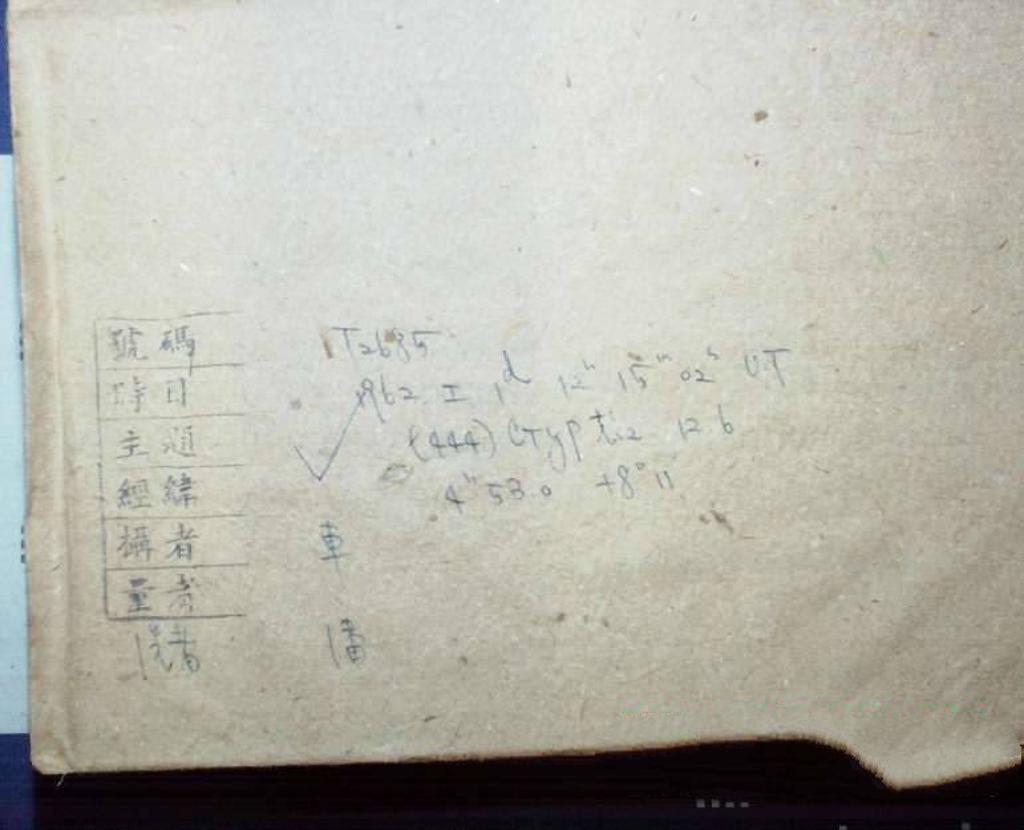 號碼 T2685
時日 1962 I 1d 12h 15m 02s UT
主題 (444) Gyptis 12.6
經緯 4h 53.0 +8°11
攝者 車
量者
洗者 潘